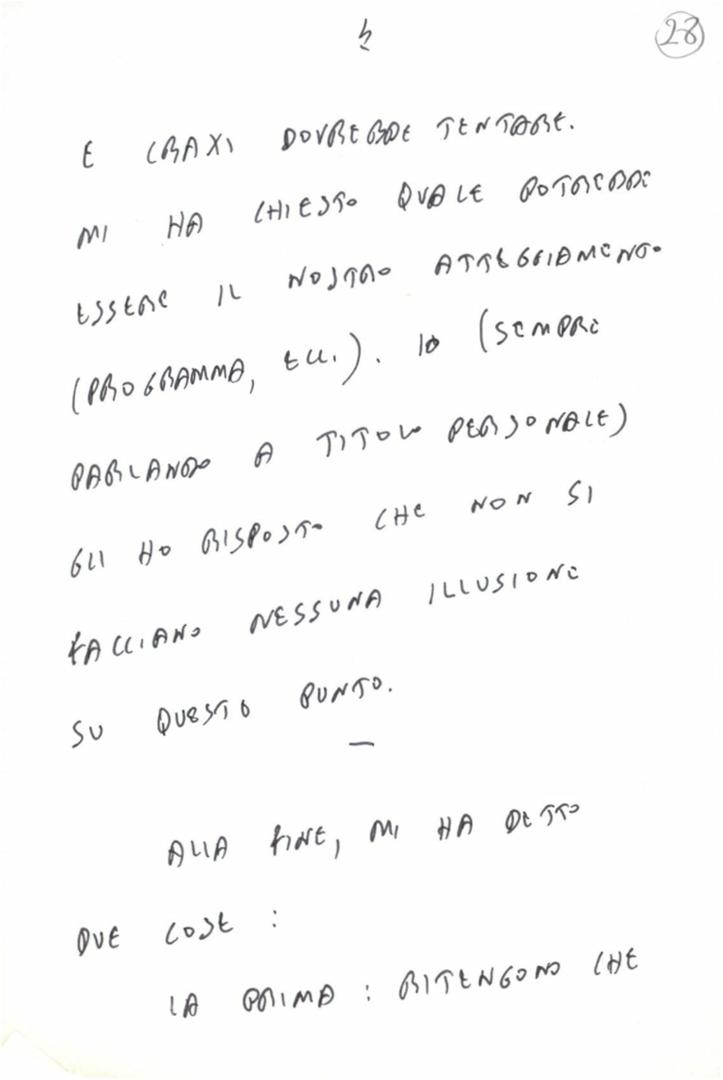 28
E CRAXI DOVREBBE TENTARE.
MI HA CHIESTO QUALE POTREBBE
ESSERE IL NOSTRO ATTEGGIAMENTO
(PROGRAMMA, ECC.). IO (SEMPRE
PARLANDO A TITOLO PERSONALE)
GLI HO RISPOSTO CHE NON SI
FACCIANO NESSUNA ILLUSIONE
SU QUESTO PUNTO.
—
ALLA FINE, MI HA DETTO
DUE COSE :
LA PRIMA : RITENGONO CHE